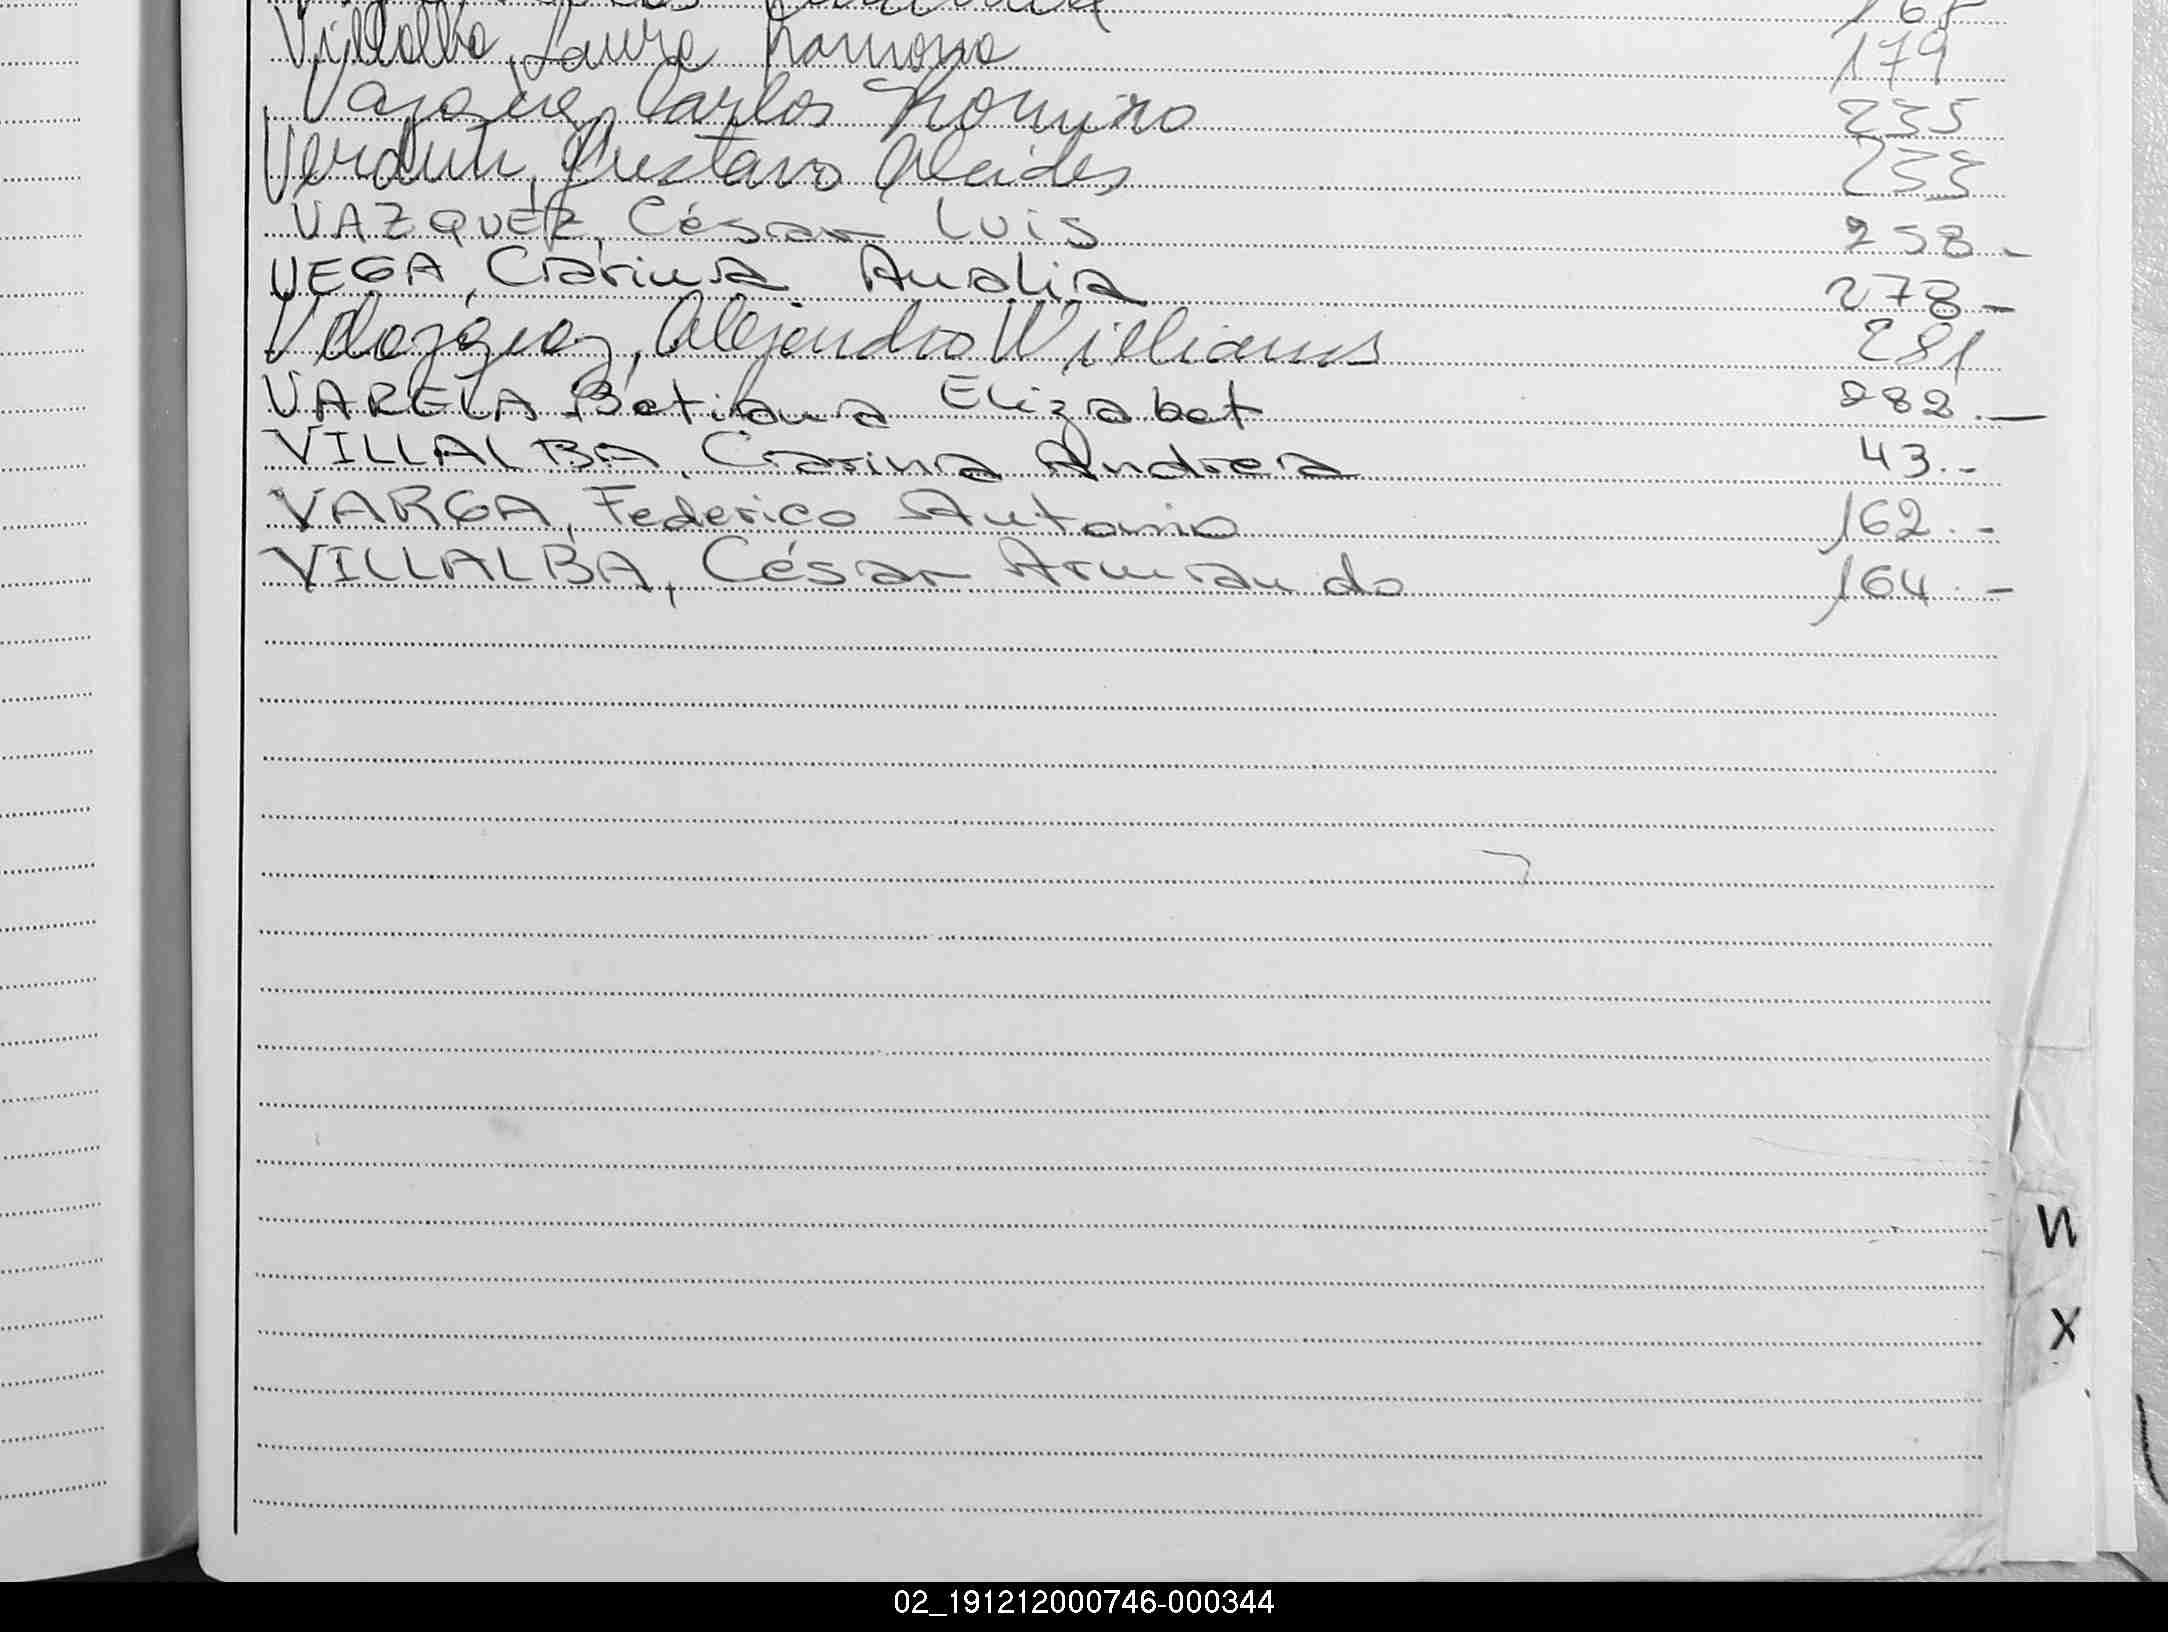 168
Villalba, Laura Ramona 179
Vazquez, Carlos Romiro 235
Verdun, Gustavo Alcides 253
VAZQUEZ, César Luis 258.-
VEGA, Carina Analia 278-
Velazquez, Alejandro Williams 281
VARELA Betiana Elizabet 282.-
VILLALBA, Carina Andrea 43.-
VARGA, Federico Antonio 162.-
VILLALBA, César Armando 164.-
X
02_191212000746-000344